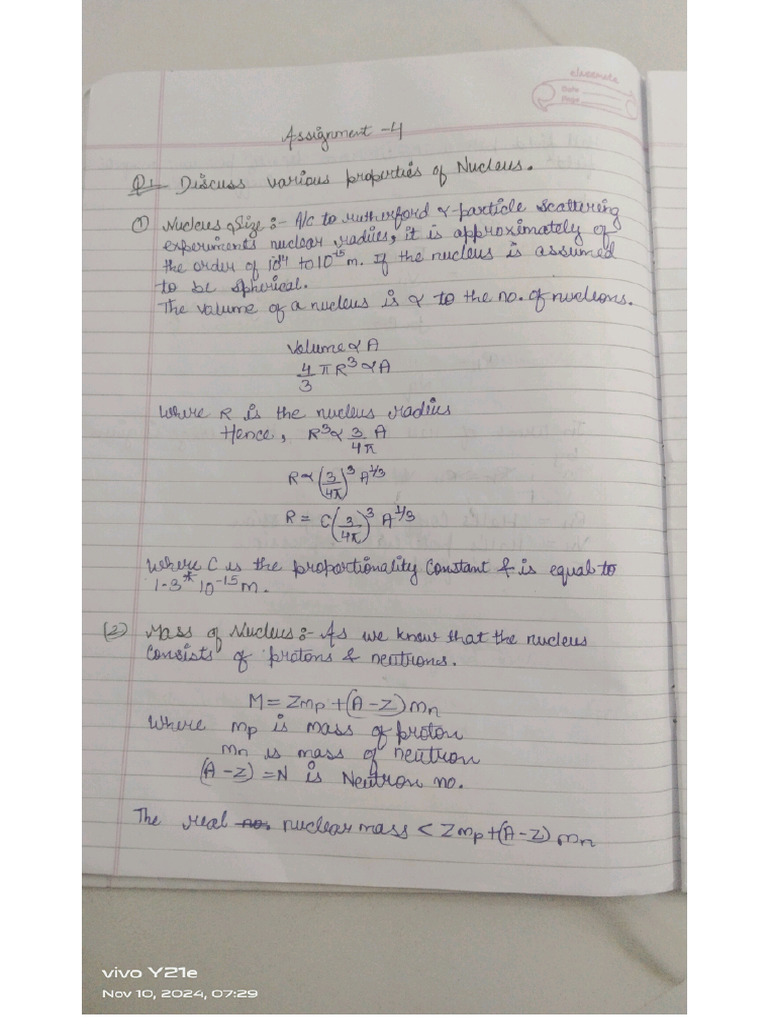 classmate
Date
Page
Assignment -4
Q1- Discuss various properties of Nucleus.
① Nucleus Size :- A/c to rutherford α-particle scattering
experiments nuclear radius, it is approximately of
the order of 10¹⁴ to 10⁻¹⁵m. If the nucleus is assumed
to be spherical.
The volume of a nucleus is α to the no. of nucleons.
Volume α A
4/3 πR³ α A
Where R is the nucleus radius
Hence, R³ α 3/4π A
R α (3/4π)³ A^1/3
R = C(3/4π)³ A^1/3
Where C is the proportionality constant & is equal to
1.3*10⁻¹⁵m.
(2) Mass of Nucleus :- As we know that the nucleus
consists of protons & neutrons.
M = Zmp + (A-Z)mn
Where mp is mass of proton
mn is mass of neutron
(A-Z) = N is Neutron no.
The real no. nuclear mass < Zmp + (A-Z) mn
vivo Y21e
Nov 10, 2024, 07:29